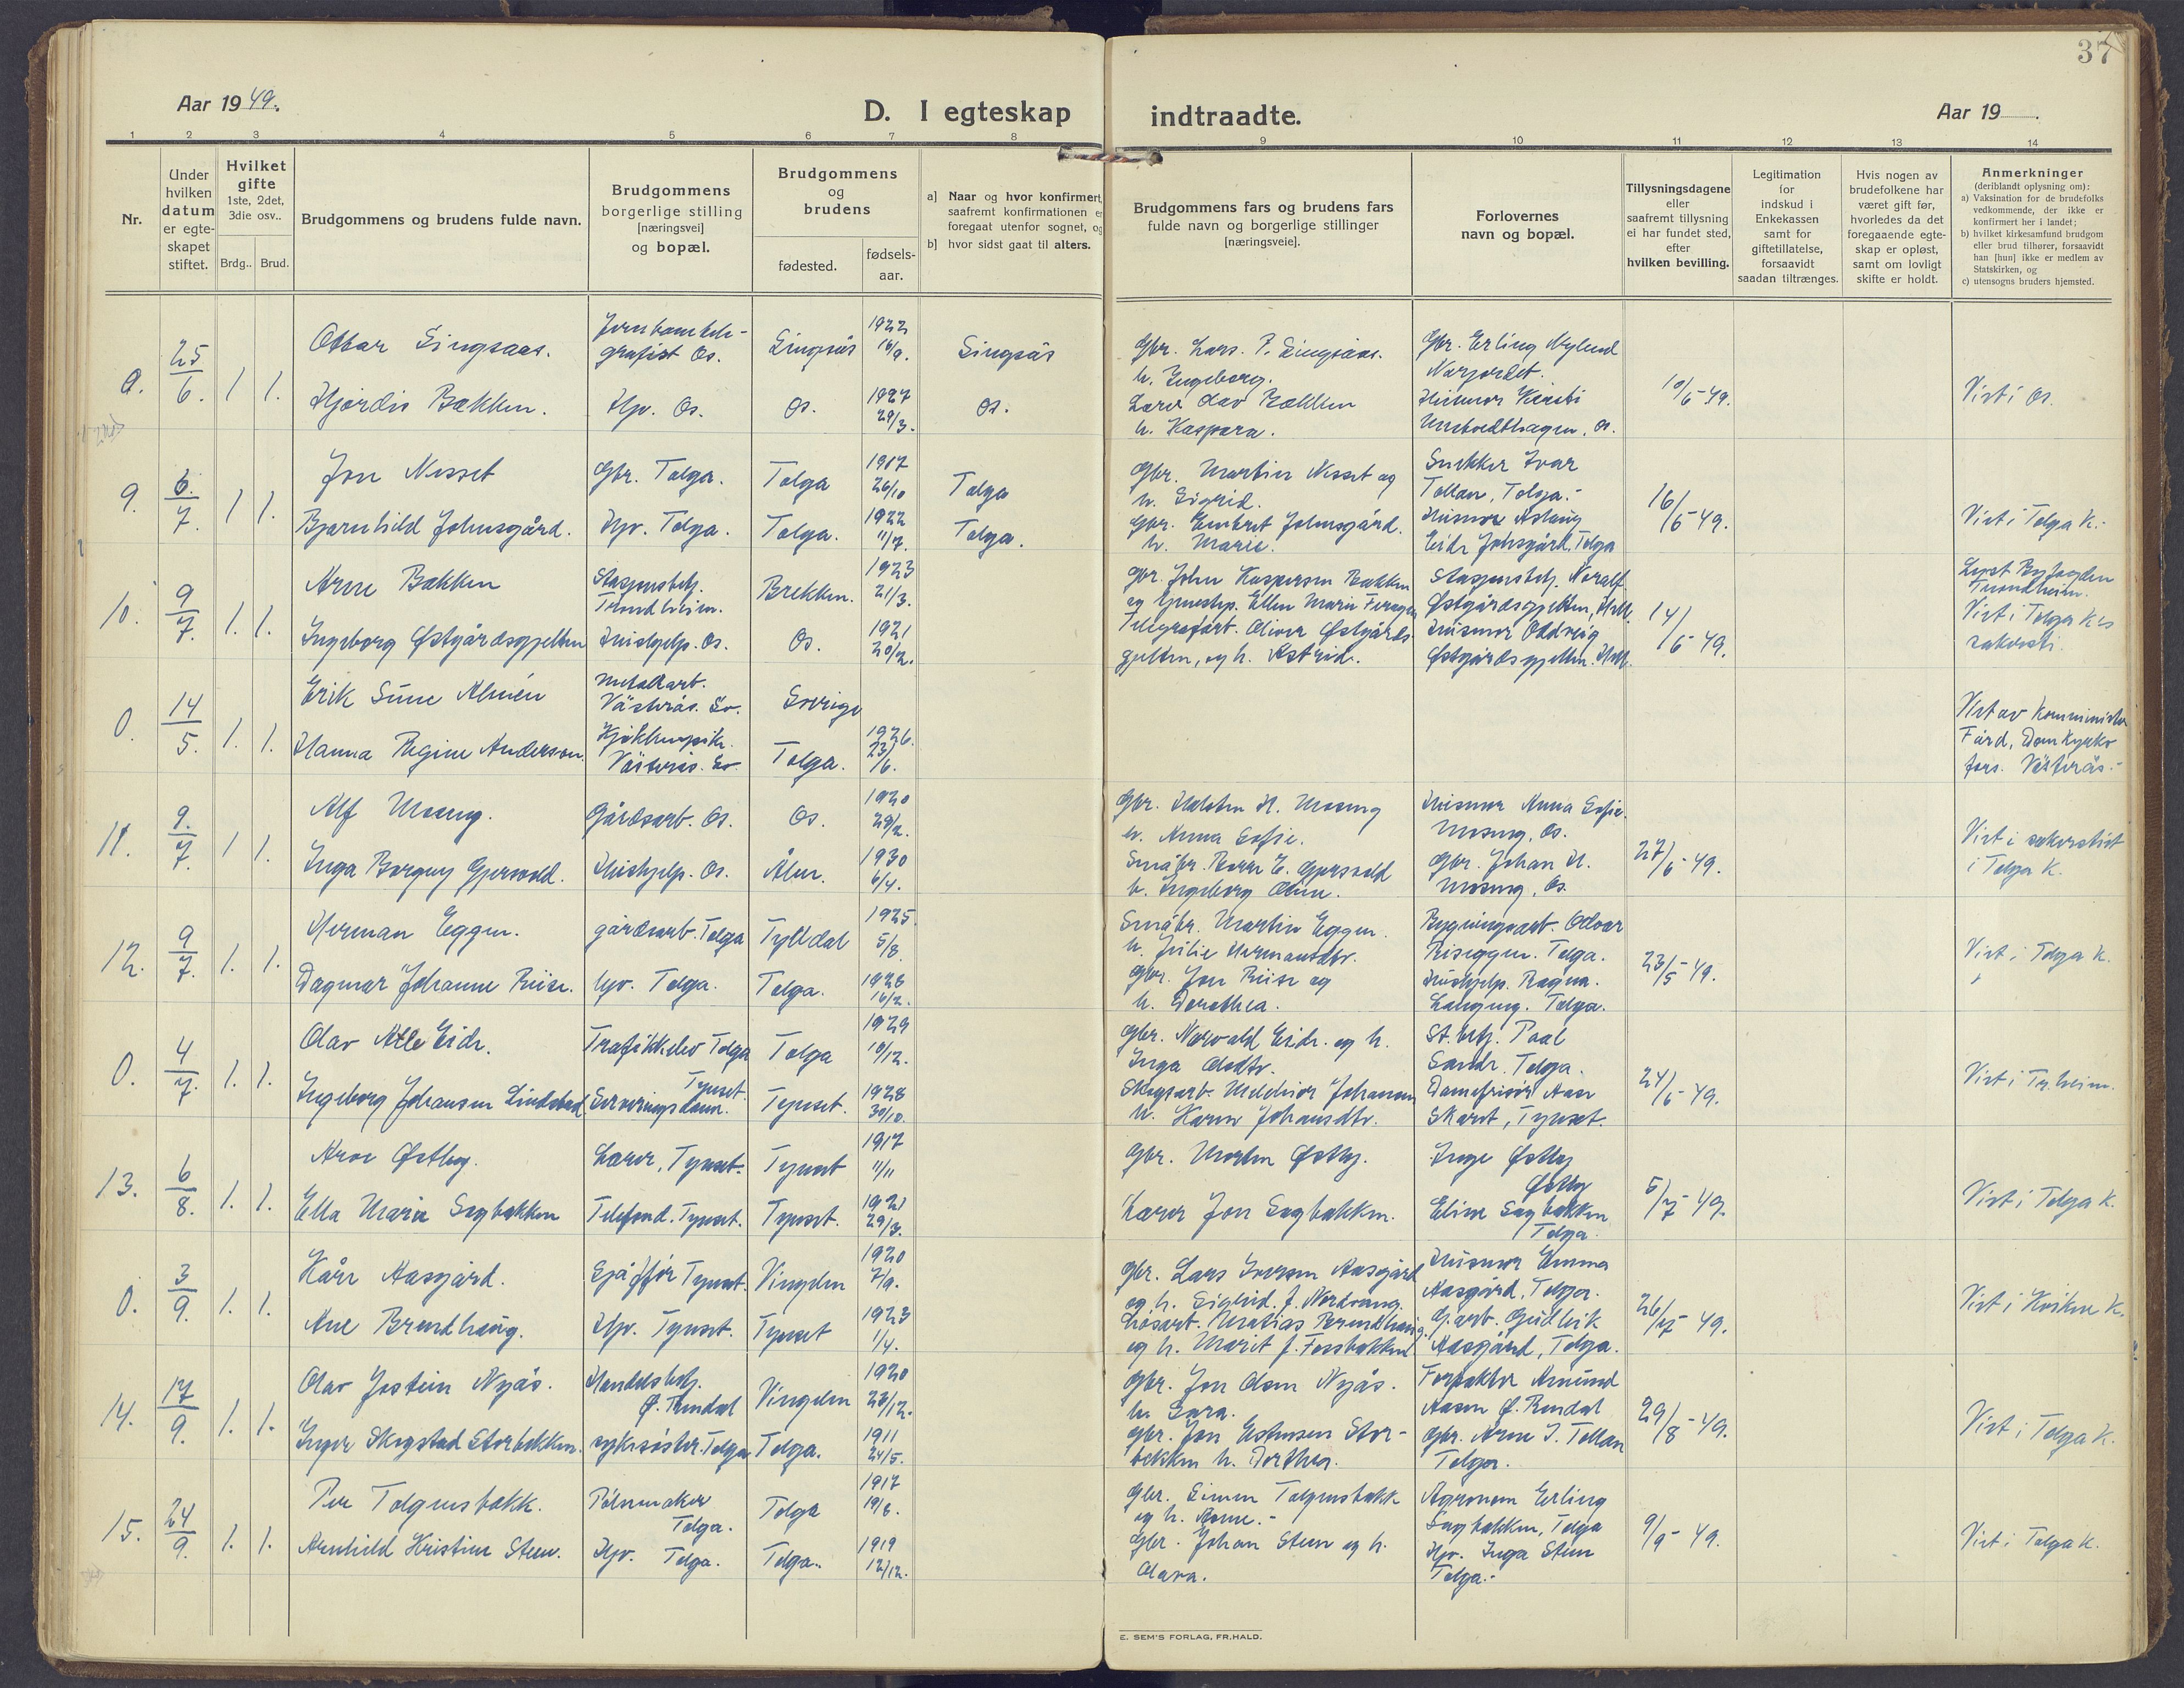 37
Aar 19 49.
D. I egteskap indtraadte.
Aar 19 .
1 2 3 4 5 6 7 8 9 10 11 12 13 14
Nr.
Under hvilken datum er egteskapet stiftet.
Hvilket gifte 1ste, 2det, 3die osv..
Brdg.. Brud.
Brudgommens og brudens fulde navn.
Brudgommens borgerlige stilling [næringsvei] og bopæl.
Brudgommens og brudens
fødested.
fødsels-aar.
a] Naar og hvor konfirmert,
saafremt konfirmationen er
foregaat utenfor sognet, og
b] hvor sidst gaat til alters.
Brudgommens fars og brudens fars
fulde navn og borgerlige stillinger
[næringsveie].
Forlovernes
navn og bopæl.
Tillysningsdagene
eller
saafremt tillysning
ei har fundet sted,
efter
hvilken bevilling.
Legitimation
for
indskud i
Enkekassen
samt for
giftetillatelse,
forsaavidt
saadan tiltrænges.
Hvis nogen av
brudefolkene har
været gift før,
hvorledes da det
foregaaende egte-
skap er opløst,
samt om lovligt
skifte er holdt.
Anmerkninger
(deriblandt oplysning om):
a) Vaksination for de brudefolks
vedkommende, der ikke er
konfirmert her i landet;
b) hvilket kirkesamfund brudgom
eller brud tilhører, forsaavidt
han [hun] ikke er medlem av
Statskirken, og
c) utensogns bruders hjemsted.
0. 25/6. 1 1.
Ottar Singsaas. grafist Os. Singsås 1922 16/9. Singsås
Hjørdis Bækken. Hjv. Os. Os. 1927 29/3. Os.
Gbr. Lars. P. Singsaas.
h. Ingeborg.
Lærer Olav Bækken
h. Kaspara.
Gbr. Erling Nylend
Narjordet.
Husmor Kirsti
10/6-49.
Vist i Os.
9. 6./7. 1 1.
Jon Nesset Gbr. Tolga. Tolga 1917 26/10 Tolga
Bjørnhild Johnsgård. Hjv. Tolga. Tolga. 1922 11/7. Tolga.
Gbr. Martin Nesset og
h. Sigrid.
Gbr. Embret Johnsgård.
h. Marie.
Snekker Ivar
Tollan, Tolga.-
Husmor Aslaug
Eide Johnsgård, Tolga
16/6-49.
Vist i Tolga K.-
10. 9/7. 1. 1.
Arne Bækken Stasjonsbetj. Trondheim. Brekken. 1923 21/3.
Ingeborg Østgårdsgjelten Hushjelp. Os. Os. 1921 20/2.
Gbr. John Kaspersen Bækken
Telegrafarb. Oliver Østgårds
gjelten, og h. Astrid.
Stasjonsbetj. Noralf
Østgårdsgjelten,
Husmor Oddveig
Østgårdsgjelten.
14/6-49.
Lyst Byfogden
Trondheim.
Vist i Tolga K.s
sakristi.
0. 14/5. 1. 1.
Erik Sune Almén Metallarb. Västerås. Sv. Sverige
Hanna Regine Anderson. Västerås. Sv. Tolga. 1926. 23/6.
Viet av Komminister
Färd, Domkyrko
förs. Västerås.-
11. 9./7. 1 1.
Alf Moseng. Gårdsarb. Os. Os. 1920 29/2.
Inga Borgny Gjersvold. Hushjelp. Os. Ålen. 1930 6/4.
Gbr. Halsten H. Moseng
h. Anna Sofie.
Småbr. Peder E. Gjersvold
h. Ingeborg Oline.
Husmor Anna Sofie.
Moseng, Os.
Gbr. Johan H.
Moseng, Os.
27/6-49.
Vist i sakristiet
i Tolga K.
12. 9/7. 1. 1.
Herman Eggen. gårdsarb. Tolga Tylldal 1925. 5/8.
Dagmar Johanne Riise. hjv. Tolga. Tolga. 1928 16/2.
Småbr. Martin Eggen.
h. Julie Hermansdtr.
Gbr. Jon Riise og
h. Dorothea.
Bygningsarb. Odvar
Riseggen. Tolga.
Hushjelp. Ragna.
Langeng. Tolga.
23/5-49.
Vist i Tolga K.
0. 4/7. 1. 1.
Olav Atle Eide. Trafikkelev Tolga Tolga 1929 10/12.
Ingeborg Johansen Lindstad Serveringsdame. Tynset. Tynset. 1928 30/10.
Gbr. Norvald Eide. og h.
Inga Olsdtr.
Skogsarb. Melchior Johansen
h. Karen Johansdtr.
St.betj. Paal
Sande. Tolga.
Damefrisør Aase
Skaret, Tynset.
24/6-49.
Vist i Tr.heim.
13. 6/8. 1. 1.
Arve Østby. Lærer, Tynset. Tynset 1917 11/11
Ella Marie Sagbakken Telefond. Tynset. Tynset. 1921 29/3.
Gbr. Morten Østby.
Lærer Jon Sagbakken.
Inge Østby
Østby
Eline Sagbakken
Tolga.
5/7-49.
Vist i Tolga K.
0. 3/9. 1. 1.
Kåre Aasgård. Sjåffør Tynset. Vingelen 1920 7/9.
Ane Brendhaug. Hjv. Tynset. Tynset 1923 1/4.
Gbr. Lars Iversen Aasgård
og h. Sigrid. f. Nordvang.
Løsarb. Mathias Brendhaug.
og h. Marit f. Fossbakken
Husmor Emma
Aasgård, Tolga.
G.arb. Gudleik
Aasgård, Tolga.
26/7-49.
Vist i Kvikne K.
14. 17/9. 1. 1.
Olav Jostein Nyås. Handelsbetj. Ø. Rendal Vingelen 1920 23/12.
Inger Skogstad Storbekken. sykesøster. Tolga Tolga. 1911 24/5.
Gbr. Jon Olsen Nyås.
h. Sara.
Gbr. Jon Estensen Stor-
bekken h. Dorthea.
Forpakter Amund
Aasen Ø. Rendal
Gbr. Arne J. Tollan
Tolga.
29/8-49.
Vist i Tolga K.
15. 24/9. 1. 1.
Per Tolgensbakk. Pølsemaker Tolga. Tolga 1917 19/6.
Arnhild Kristine Steen. Hjv. Tolga. Tolga. 1919 12/12.
Gbr. Simen Tolgensbakk
og h. Anne.-
Gbr. Johan Steen og h.
Olava.
Agronom Erling
Sagbakken, Tolga
Hjv. Inga Steen
Tolga.-
9/9-49.
Vist i Tolga K.
E. SEM'S FORLAG, FR.HALD.